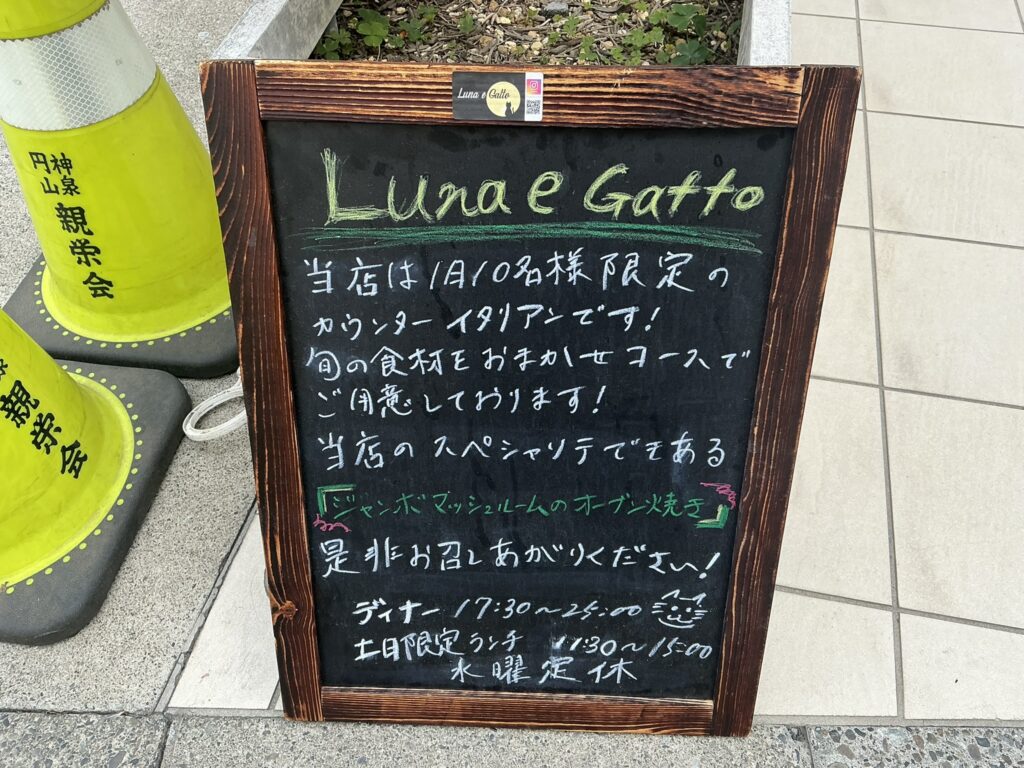 神泉
円山
親栄会
親栄会
Luna e Gatto
Luna e Gatto
当店は1月10名様限定の
カウンターイタリアンです!
旬の食材をおまかせコースで
ご用意しております!
当店のスペシャリテでもある
『ジャンボマッシュルームのオーブン焼き』
是非お召しあがりください!
ディナー 17:30~25:00
土日限定ランチ 11:30~15:00
水曜定休